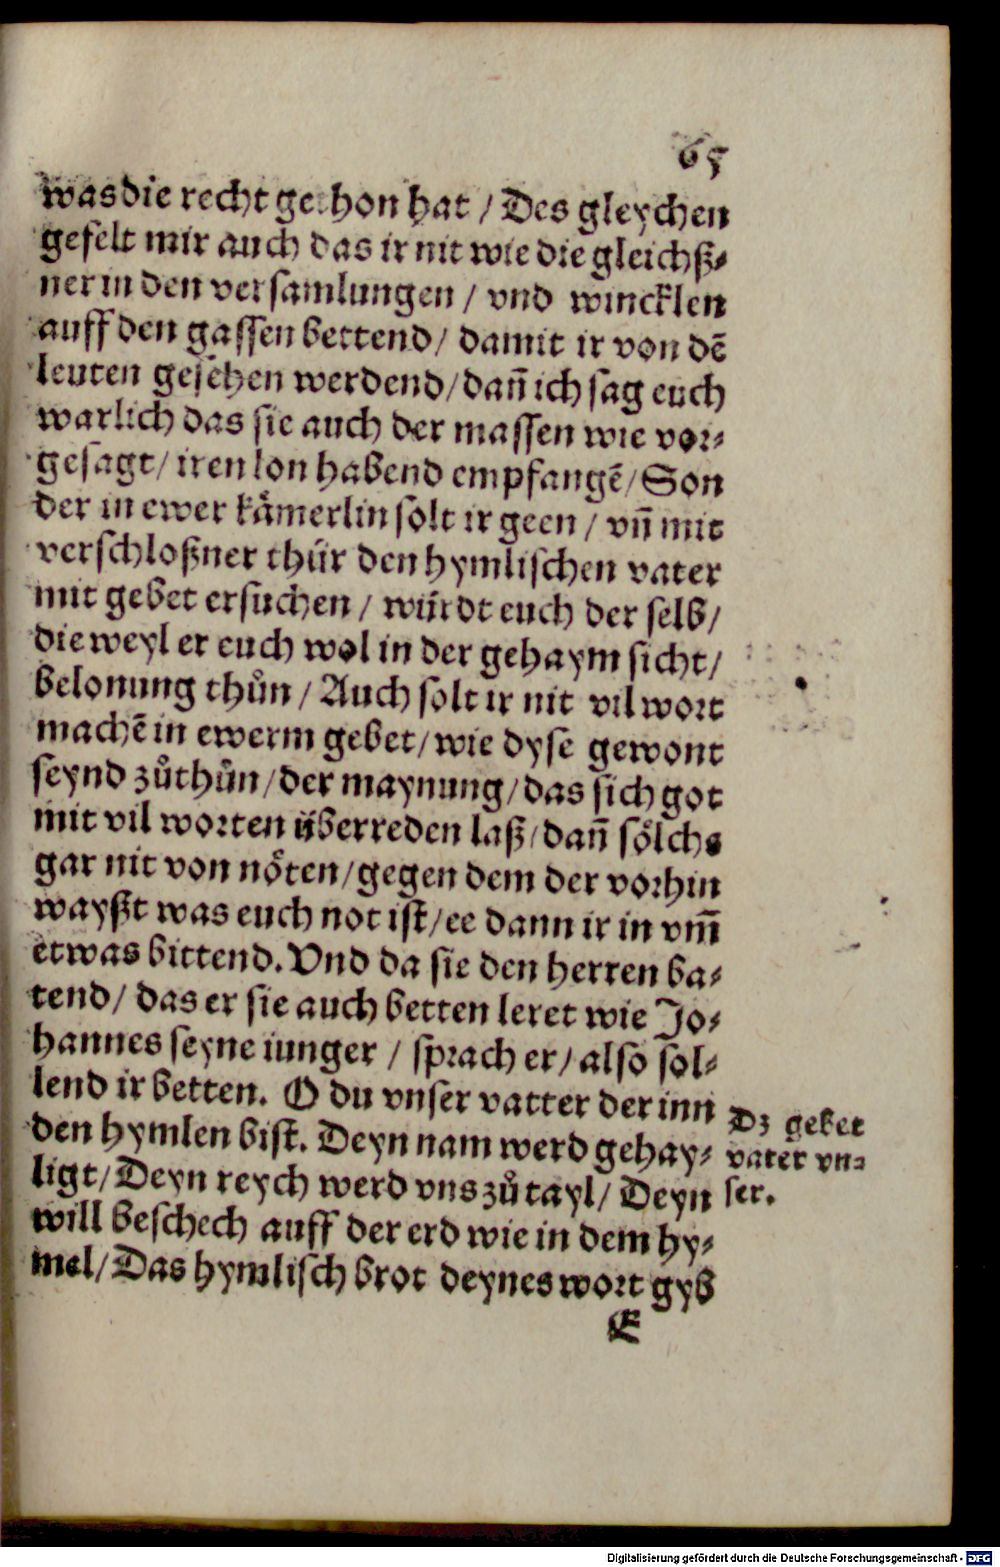 65
was die recht gethon hat / Des gleychen
gefelt mir auch das ir nit wie die gleichß⸗
ner in den versamlungen / vnd wincklen
auff den gassen bettend / damit ir von dē
leuten gesehen werdend / dañ ich sag euch
warlich das sie auch der massen wie vor⸗
gesagt / iren lon habend empfangē / Son
der in ewer kaͤmerlin solt ir geen / vñ mit
verschloßner thuͤr den hymlischen vater
mit gebet ersuchen / wuͤrdt euch der selb /
die weyl er euch wol in der gehaym sicht /
belonung thuͦn / Auch solt ir nit vil wort
machē in ewerm gebet / wie dyse gewont
seynd zuͦthuͦn / der maynung / das sich got
mit vil worten uͤberreden laß / dañ soͤlchs
gar nit von noͤten / gegen dem der vorhin
wayßt was euch not ist / ee dann ir in vm̄
etwas bittend. Vnd da sie den herren ba⸗
tend / das er sie auch betten leret wie Jo⸗
hannes seyne iunger / sprach er / also sol⸗
lend ir betten. O du vnser vatter der inn
den hymlen bist. Deyn nam werd gehay⸗
ligt / Deyn reych werd vns zuͦ tayl / Deyn
will beschech auff der erd wie in dem hy⸗
mel / Das hymlisch brot deynes wort gyb
Dz gebet
vater vn⸗
ser.
E
Digitalisierung gefördert durch die Deutsche Forschungsgemeinschaft - DFG